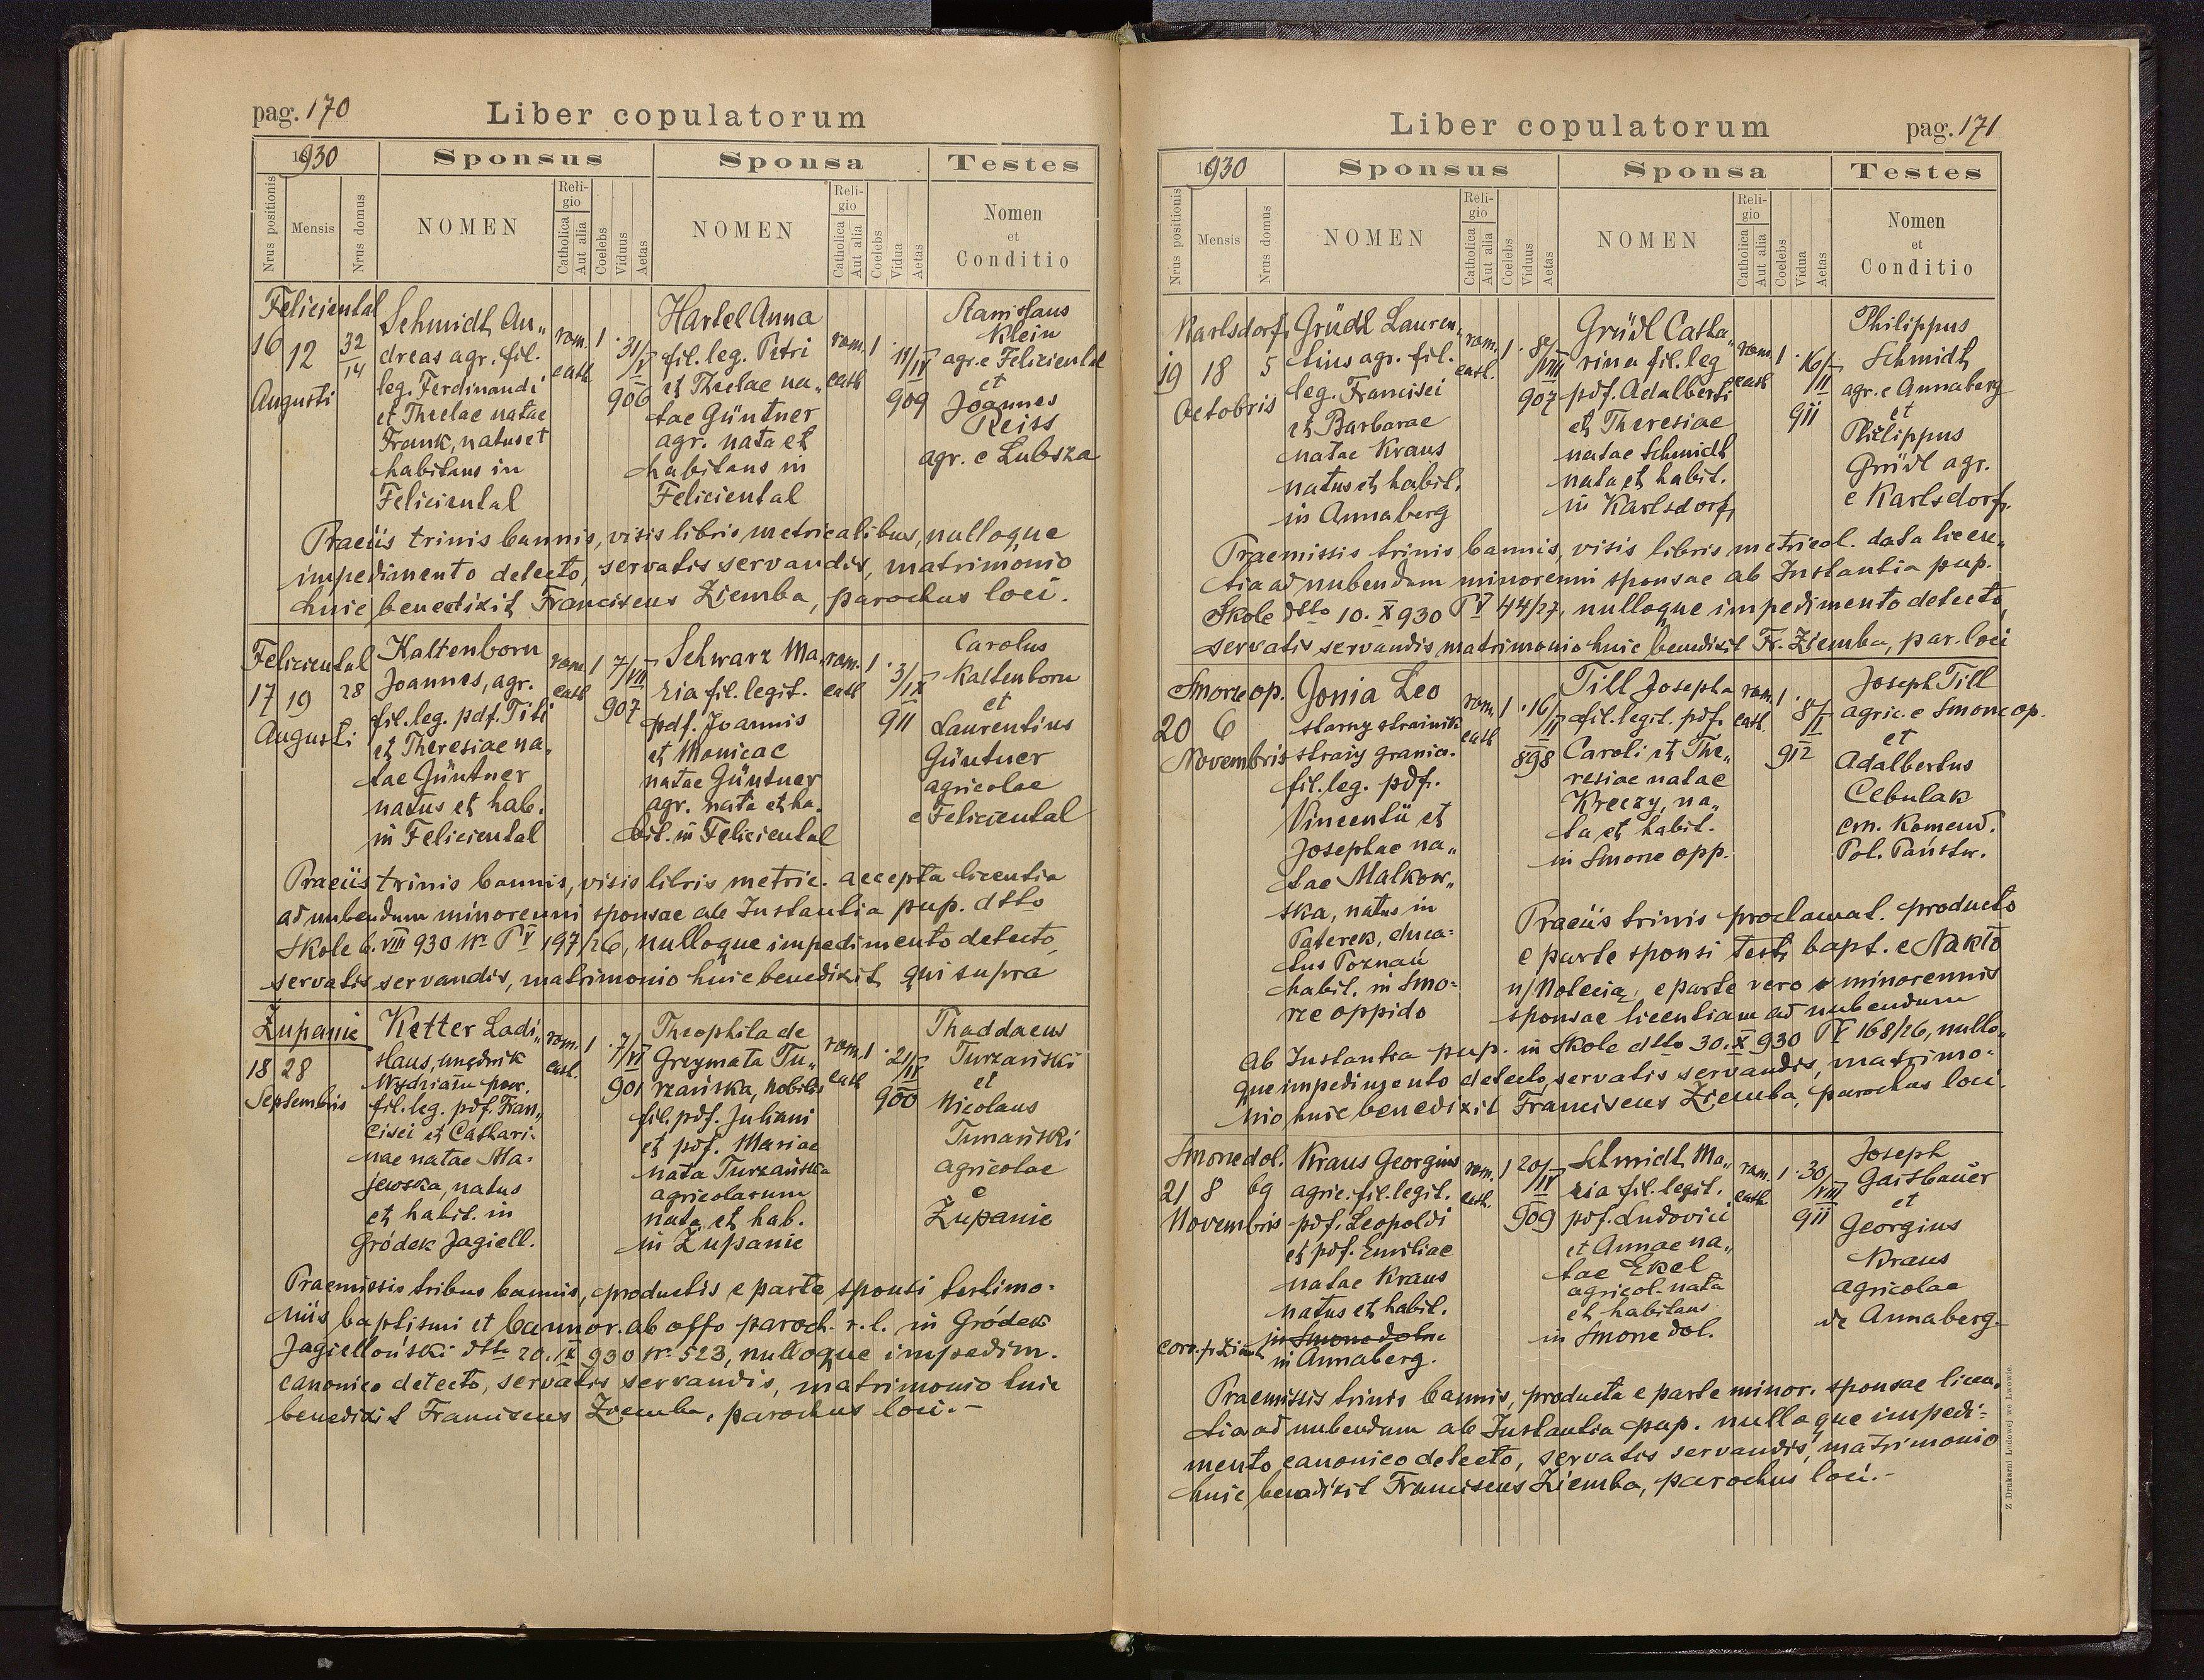 pag. 170
Liber copulatorum
1930
Sponsus
Sponsa
Testes
Nrus positionis
Mensis
Nrus domus
NOMEN
Religio
Catholica
Aut alia
Coelebs
Viduus
Aetas
NOMEN
Religio
Catholica
Aut alia
Coelebs
Vidua
Aetas
Nomen
et
Conditio
Feliciental
16 12 32/14
Augusti
Schmidt An„
dreas agr. fil.
leg. Ferdinandi
et Threlae natae
Frank, natus et
habitans in
Feliciental
rom. 1 · 31/V
cath 906
Hartel Anna
fil. leg. Petri
et Threlae na„
tae Güntner
agr. nata et
habitans in
Feliciental
rom. 1 · 11/IV
cath 909
Stanislaus
Klein
agr. e Feliciental
et
Joannes
Reiss
agr. e Lubsza
Praeiis trinis bannis, visis libris metricalibus, nulloque
impedimento detecto, servatis servandis, matrimonio
huic benedixit Franciscus Ziemba, parochus loci.
Feliciental
17 19 28
Augusti
Kaltenborn
Joannes, agr.
fil. leg. pdf. Titi
et Theresiae na„
tae Güntner
natus et hab.
in Feliciental
rom. 1 7/VII
cath 907
Schwarz Ma„
ria fil. legit.
pdf. Joannis
et Monicae
natae Güntner
agr. nata et ha„
bit. in Feliciental
rom. 1 · 3/IX
cath 911
Carolus
Kaltenborn
et
Laurentius
Güntner
agricolae
e Feliciental
Praeiis trinis bannis, visis libris metric. accepta licentia
ad nubendum minorenni sponsae ab Instantia pup. dtto
Skole 6. VIII 930 Nr. PV 197/26, nulloque impedimento detecto
servatis servandis, matrimonio huic benedixit qui supra
Żupanie
18 28
Septembris
Ketter Ladi„
slaus, urzędnik
Wydziału pow.
fil. leg. pdf. Fran„
cisci et Cathari=
nae natae Ma=
jewska, natus
et habit. in
Gródek Jagiell.
rom. 1 · 7/VI
cath. 901
Theophila de
Grzymała Tu„
rzańska, nobilis
fil. pdf. Juliani
et pdf. Mariae
nata Turzańska
agricolarum
nata et hab.
in Żupanie
rom. 1 · 21/II
cath 900
Thaddaeus
Turzański
et
Nicolaus
Tunański
agricolae
e
Żupanie
Praemissis tribus bannis, productis e parte sponsi testimo=
niis baptismi et bannor. ab offo paroch. r. l. in Gródek
Jagielloński dtto 20. IX 930 Nr. 523, nulloque impedim.
canonico detecto, servatis servandis, matrimonio huic
benedixit Franciscus Ziemba, parochus loci. –
Liber copulatorum
pag. 171
1930
Sponsus
Sponsa
Testes
Nrus positionis
Mensis
Nrus domus
NOMEN
Religio
Catholica
Aut alia
Coelebs
Viduus
Aetas
NOMEN
Religio
Catholica
Aut alia
Coelebs
Vidua
Aetas
Nomen
et
Conditio
Karlsdorf
19 18 5
Octobris
Grüdl Lauren„
tius agr. fil.
leg. Francisci
et Barbarae
natae Kraus
natus et habit.
in Annaberg
rom. 1 · 8/VIII
cath. 907
Grüdl Catha„
rina fil. leg
pdf. Adalberti
et Theresiae
natae Schmidt
nata et habit.
in Karlsdorf
rom. 1 · 16/II
cath 911
Philippus
Schmidt
agr. e Annaberg
et
Philippus
Grüdl agr.
e Karlsdorf.
Praemissis trinis bannis, visis libris metrical. data licen„
tia ad nubendum minorenni sponsae ab Instantia pup.
Skole dtto 10. X 930 PV 44/27, nulloque impedimento detecto
servatis servandis matrimonio huic benedixit Fr. Ziemba, par. loci
Smorze op.
20 6
Novembris
Jonia Leo
starszy strażnik
straży granicz.
fil. leg. pdf.
Vincentii et
Josephae na„
tae Malkow„
ska, natus in
Paterek, educa=
tus Poznań
habit. in Smo=
rze oppido
rom. 1 · 16/II
cath 898
Till Josepha
fil. legit. pdf.
Caroli et The„
resiae natae
Kreczy, na„
ta et habit.
in Smorze opp.
rom. 1 · 8/I
cath. 912
Joseph Till
agric. e Smorze op.
et
Adalbertus
Cebulak
em. Komend.
Pol. Państw.
Praeiis trinis proclamat. producto
e parte sponsi testi bapt. e Nakło
n/Notecią, e parte vero minorennis
sponsae licentiam ad nubendum
ab Instantia pup. in Skole dtto 30. X 930 PV 168/26, nullo„
que impedimento detecto, servatis servandis, matrimo=
nio huic benedixit Franciscus Ziemba, parochus loci.
Smorze dol.
21 8 69
Novembris
Kraus Georgius
agric. fil. legit.
pdf. Leopoldi
et pdf. Emiliae
natae Kraus
natus et habit.
in Smorze doln.
in Annaberg.
rom. 1 20/IV
cath. 909
Schmidt Ma„
ria fil. legit.
pdf. Ludovici
et Annae na„
tae Ekel
agricol. nata
et habitans
in Smorze dol.
rom. 1 · 30/VIII
cath 911
Joseph
Gaisbauer
et
Georgius
Kraus
agricolae
de Annaberg.
Praemissis trinis bannis, producta e parte minor. sponsae licen„
tia ad nubendum ab Instantia pup. nulloque impedi=
mento canonico detecto, servatis servandis, matrimonio
huic benedixit Franciscus Ziemba, parochus loci. –
Z Drukarni Ludowej we Lwowie.